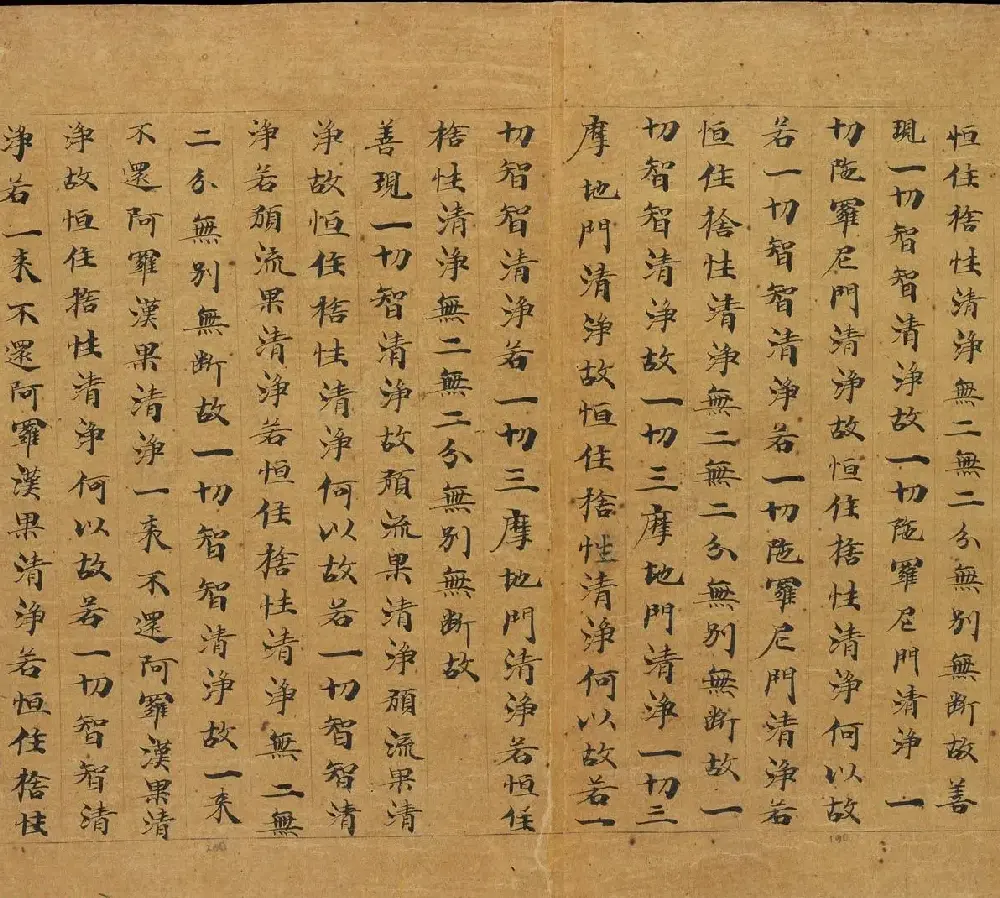 恒住捨性清淨無二無二分無別無断故善
現一切智智清淨故一切陁羅尼門清淨一
切陁羅尼門清淨故恒住捨性清淨何以故
若一切智智清淨若一切陁羅尼門清淨若
恒住捨性清淨無二無二分無別無断故一
切智智清淨故一切三摩地門清淨一切三
摩地門清淨故恒住捨性清淨何以故若一
切智智清淨若一切三摩地門清淨若恒住
捨性清淨無二無二分無別無断故
善現一切智智清淨故預流果清淨預流果清
淨故恒住捨性清淨何以故若一切智智清
淨若預流果清淨若恒住捨性清淨無二無
二分無別無断故一切智智清淨故一来
不還阿羅漢果清淨一来不還阿羅漢果清
淨故恒住捨性清淨何以故若一切智智清
淨若一来不還阿羅漢果清淨若恒住捨性
190
200